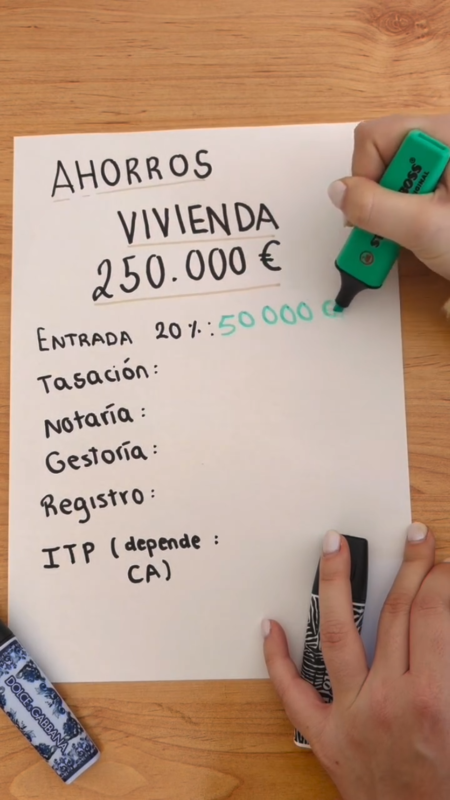 AHORROS
VIVIENDA
250.000 €
ENTRADA 20%: 50000 €
Tasación:
Notaría:
Gestoría:
Registro:
ITP (depende :
CA)
BOSS
DOLCE & GABBANA